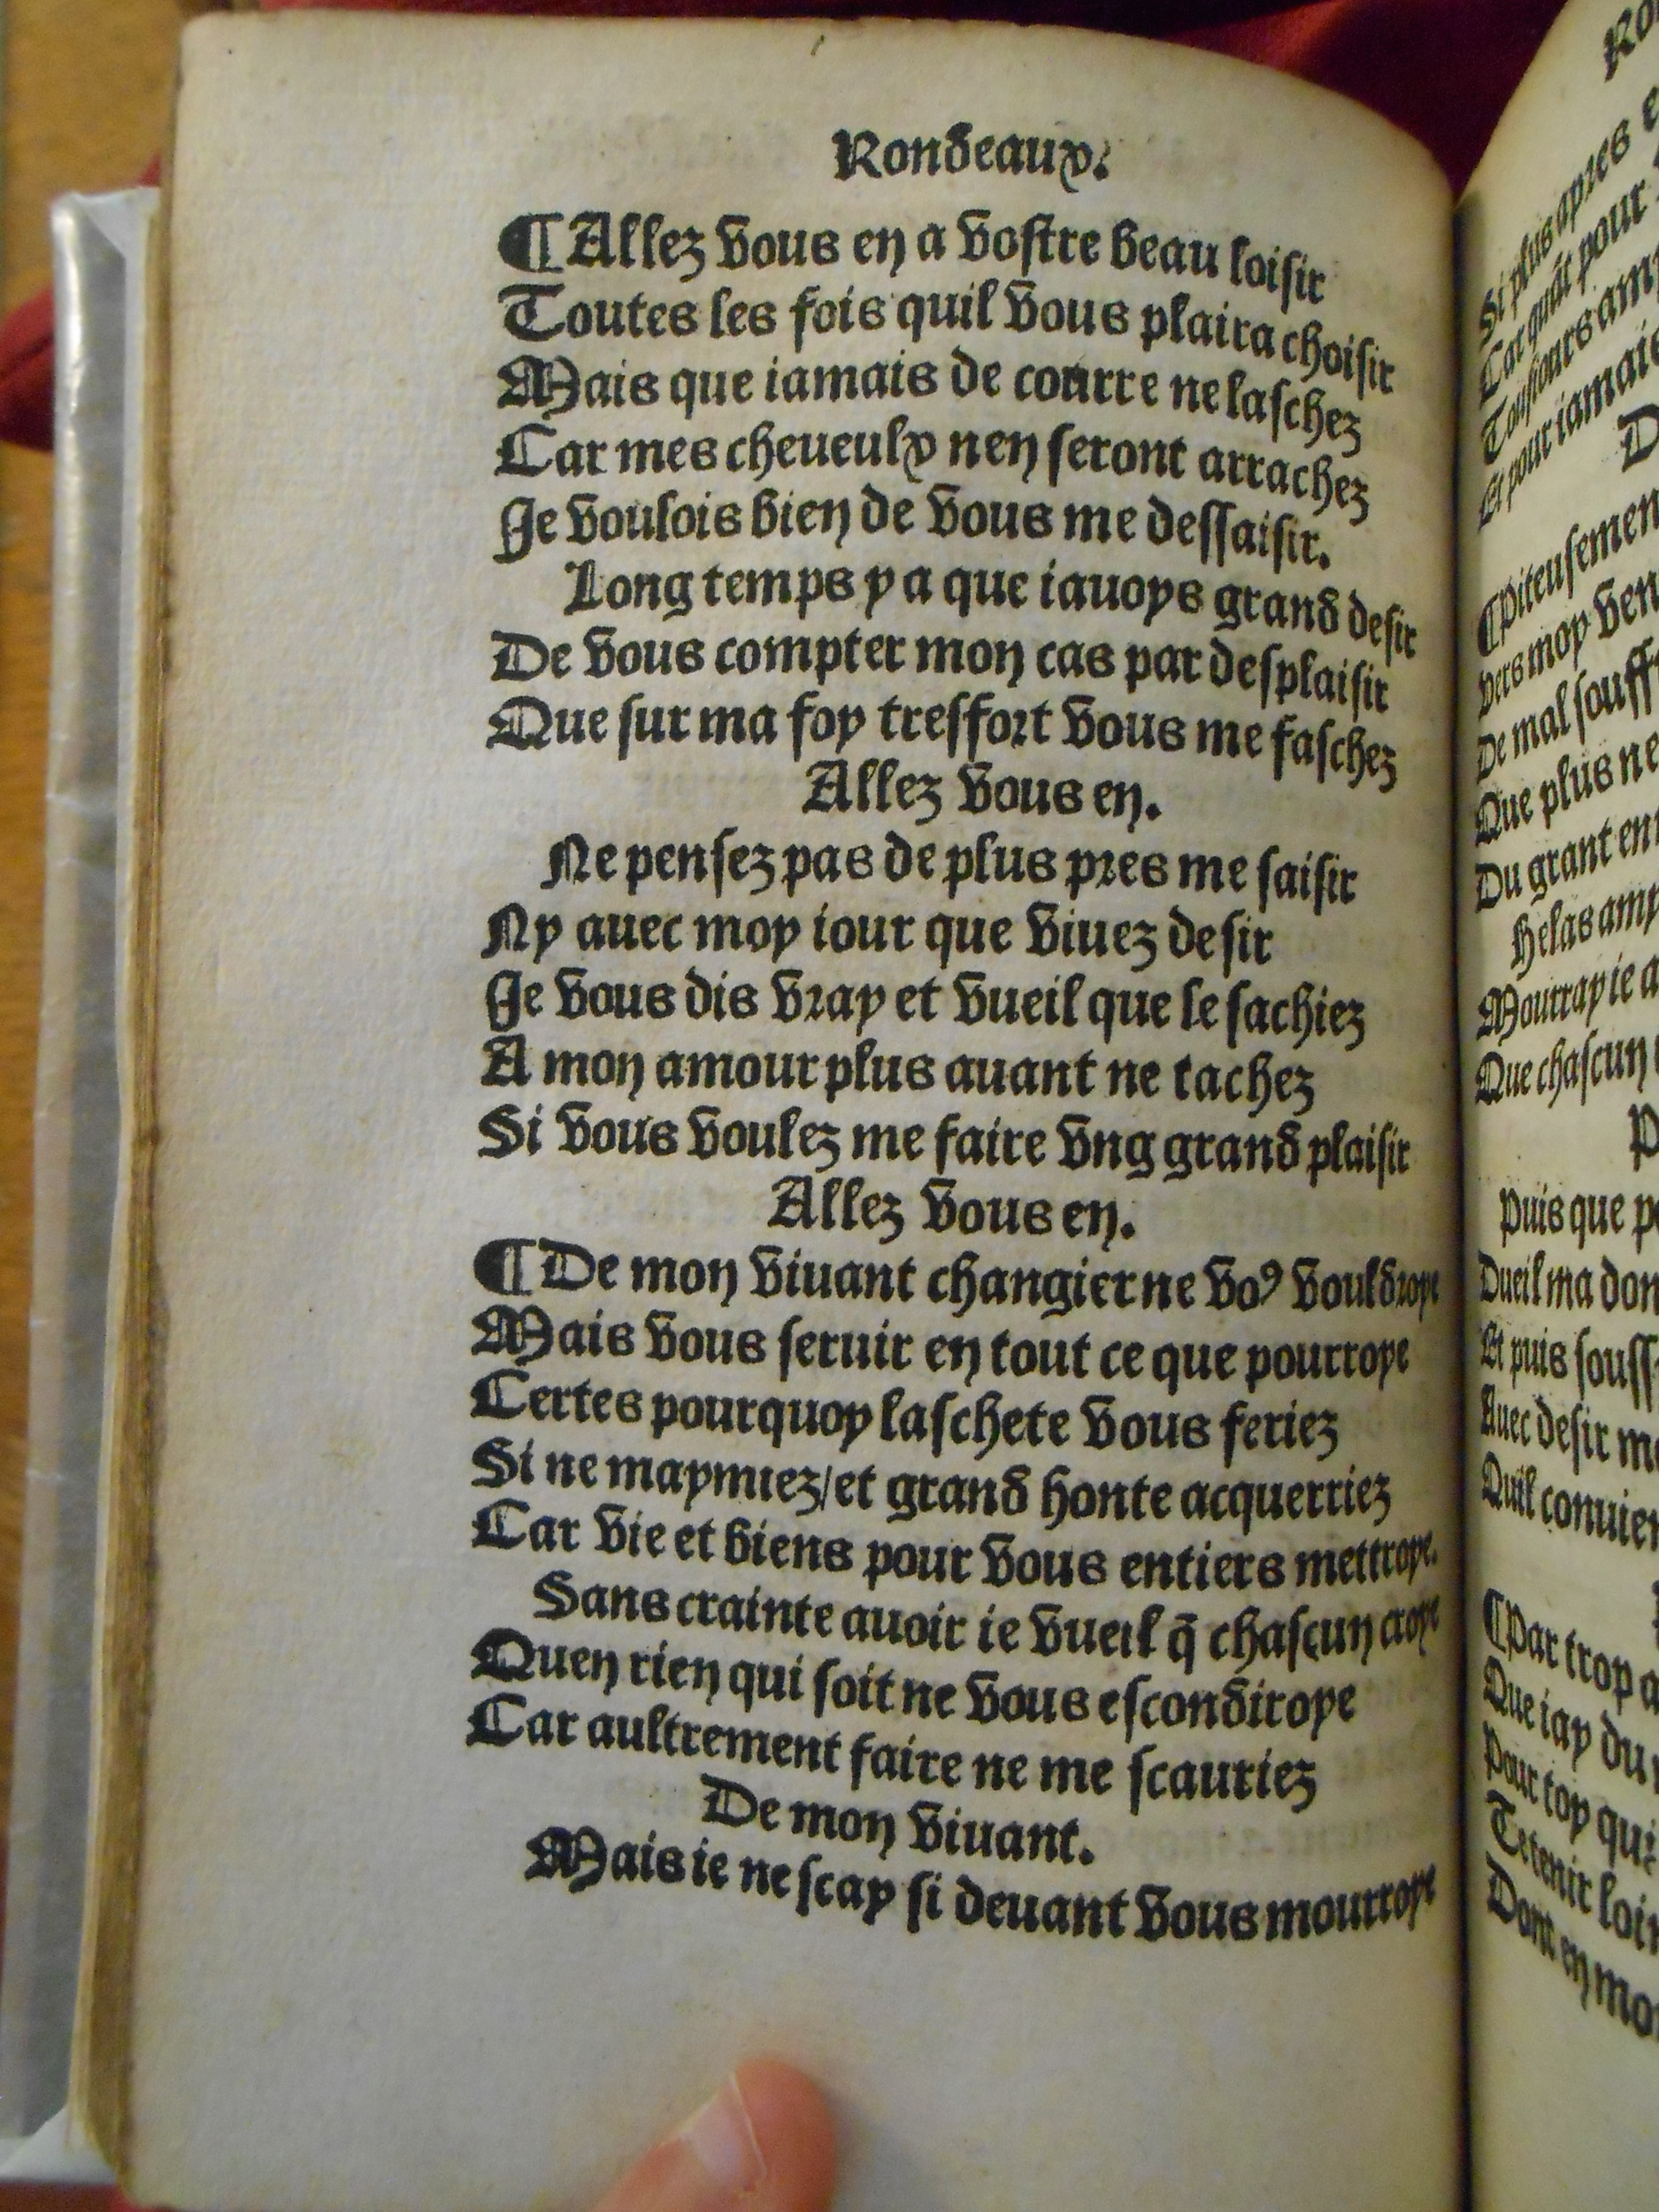 Rondeaux.
¶Allez vous en a vostre beau loisir
Toutes les fois quil vous plaira choisir
Mais que iamais de courre ne laschez
Car mes cheueulx nen seront arrachez
Je voulois bien de vous me dessaisir.
Long temps y a que iauoys grand desir
De vous compter mon cas par desplaisir
Que sur ma foy tresfort vous me faschez
Allez vous en.
Ne pensez pas de plus pres me saisir
Ny auec moy iour que viuez desir
Je vous dis vray et vueil que le sachiez
A mon amour plus auant ne tachez
Si vous voulez me faire vng grand plaisir
Allez vous en.
¶De mon viuant changier ne voꝰ vouldroye
Mais vous seruir en tout ce que pourroye
Certes pourquoy laschete vous feriez
Si ne maymiez/et grand honte acquerriez
Car vie et biens pour vous entiers mettroye.
Sans crainte auoir ie vueil q̄ chascun croye
Quen rien qui soit ne vous escondiroye
Car aultrement faire ne me scauriez
De mon viuant.
Mais ie ne scay si deuant vous mourroye
Si plus apres
Car quāt pour
Tousiours
Et pour iamais
¶Piteusement
Vers moy
De mal
Que plus ne
Du grant
Helas
Mourray ie
Que chascun
Puis que
Dueil ma
Et puis
Auec desir
Quil
¶Par trop
Que iay du
Pour toy qui
Tetenir
Dont en